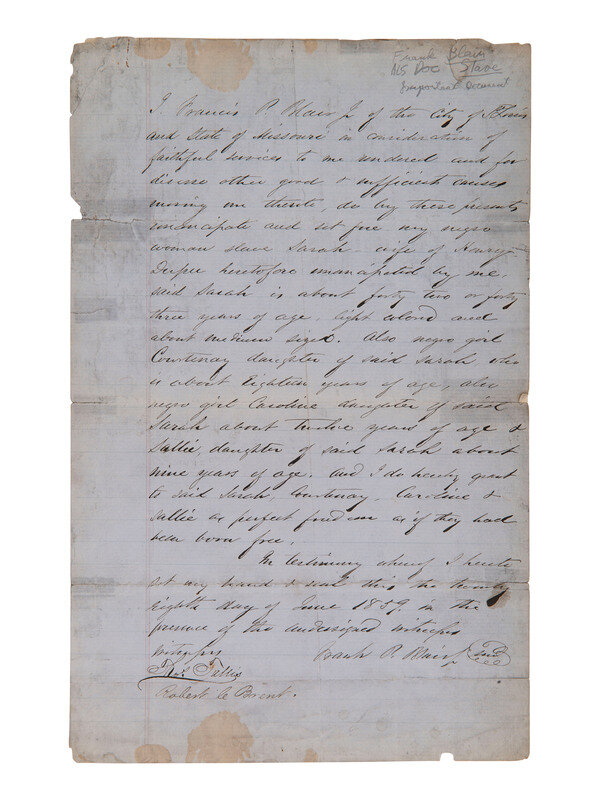 Frank Blair
ALS Doc Slave
Important Document
I, Francis P. Blair Jr of the City of St Louis
and State of Missouri in consideration of
faithful services to me rendered and for
diverse other good & sufficient causes
moving me thereto do by these presents
emancipate and set free my negro
woman slave Sarah - wife of Henry
Dupee heretofore emancipated by me.
said Sarah is about forty two or forty
three years of age, light colored and
about medium size. Also negro girl
Courtenay daughter of said Sarah who
is about Eighteen years of age, also
negro girl Caroline daughter of said
Sarah about twelve years of age &
Sallie, daughter of said Sarah about
nine years of age. and I do hereby grant
to said Sarah, Courtenay, Caroline &
Sallie as perfect freedom as if they had
been born free.
In testimony whereof I hereto
set my hand & seal this the twenty
Eighth day of June 1859. in the
presence of the undersigned witnesses
witnesses
Frank P. Blair Jr Seal
Robert C Brent.